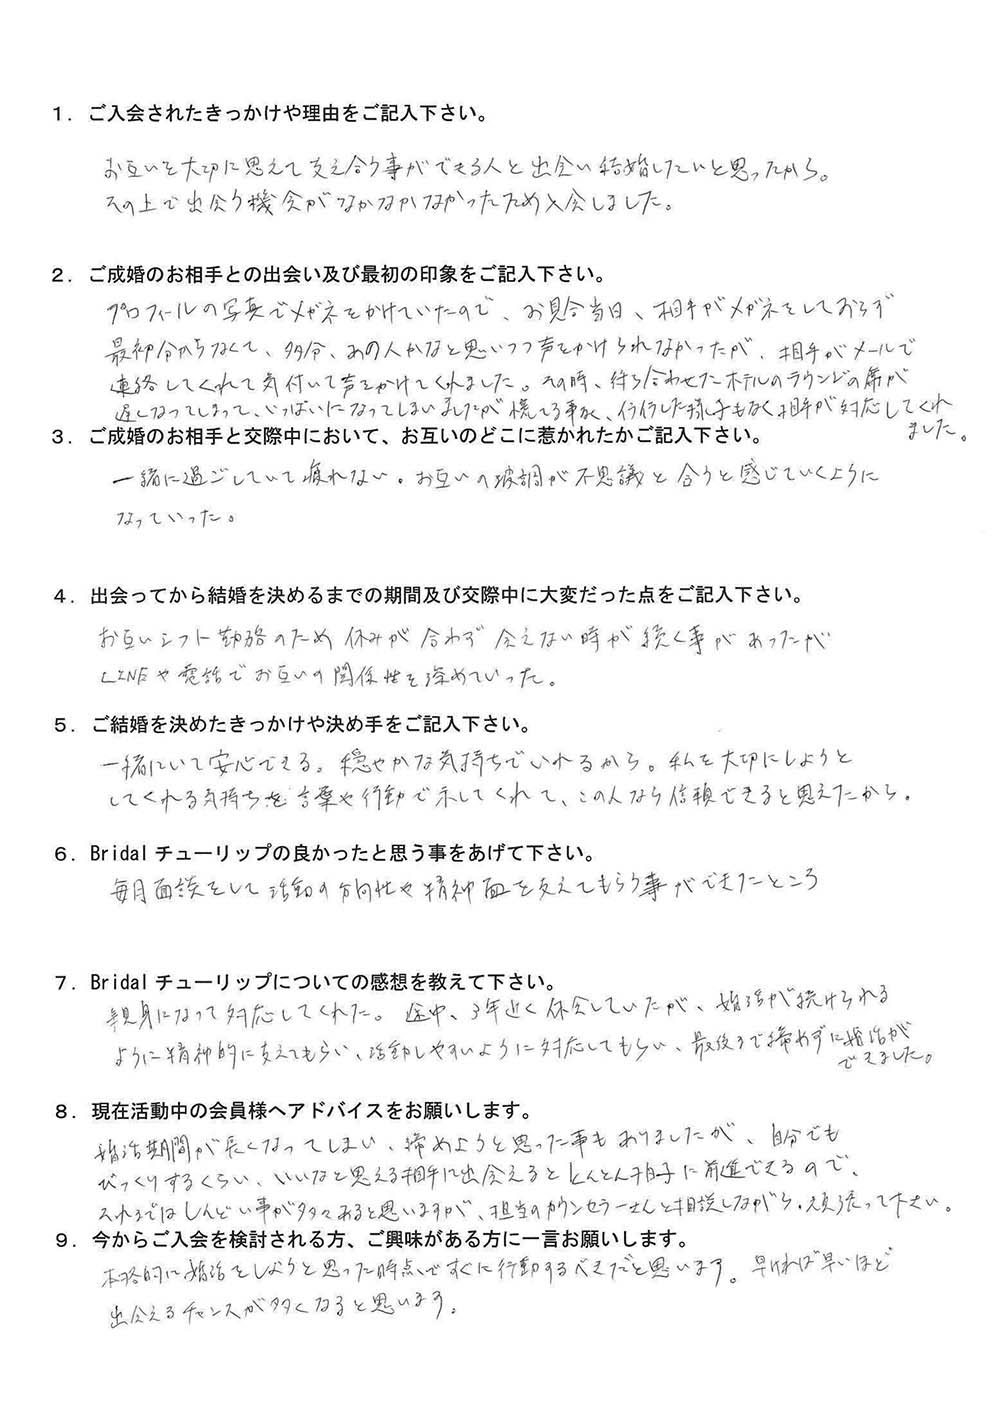 1．ご入会されたきっかけや理由をご記入下さい。
お互いを大切に思えて支え合う事ができる人と出会い結婚したいと思ったから。
その上で出会う機会がなかなかなかったため入会しました。
2．ご成婚のお相手との出会い及び最初の印象をご記入下さい。
プロフィールの写真でメガネをかけていたので、お見合当日、相手がメガネをしておらず
最初分からなくて、多分、あの人かなと思いつつ声をかけられなかったが、相手がメールで
連絡してくれて気付いて声をかけてくれました。その時、待ち合わせたホテルのラウンジの席が
遅くなってしまって、いっぱいになってしまいましたが慌てる事なく、行行した様子もなく相手が対応してくれ
ました。
3．ご成婚のお相手と交際中において、お互いのどこに惹かれたかご記入下さい。
一緒に過ごしていて疲れない。お互いの波調が不思議と合うと感じていくように
なっていった。
4．出会ってから結婚を決めるまでの期間及び交際中に大変だった点をご記入下さい。
お互いシフト勤務のため休みが合わず会えない時が続く事があったが
LINEや電話でお互いの関係性を深めていった。
5．ご結婚を決めたきっかけや決め手をご記入下さい。
一緒にいて安心できる。穏やかな気持ちでいれるから。私を大切にしようと
してくれる気持ちを言葉や行動で示してくれて、この人なら信頼できると思えたから。
6．Bridalチューリップの良かったと思う事をあげて下さい。
毎月面談をして活動の方向性や精神面を支えてもらう事ができたところ
7．Bridalチューリップについての感想を教えて下さい。
親身になって対応してくれた。途中、3年近く休会していたが、婚活が続けられる
ように精神的に支えてもらい、活動しやすいように対応してもらい、最後まで諦めずに婚活が
できました。
8．現在活動中の会員様へアドバイスをお願いします。
婚活期間が長くなってしまい、諦めようと思った事もありましたが、自分でも
びっくりするくらい、いいなと思える相手に出会えるととんとん拍子に前進できるので、
それまではしんどい事が多々あると思いますが、担当のカウンセラーさんと相談しながら、頑張って下さい。
9．今からご入会を検討される方、ご興味がある方に一言お願いします。
本格的に婚活をしようと思った時点ですぐに行動するべきだと思います。早ければ早いほど
出会えるチャンスが多くなると思います。